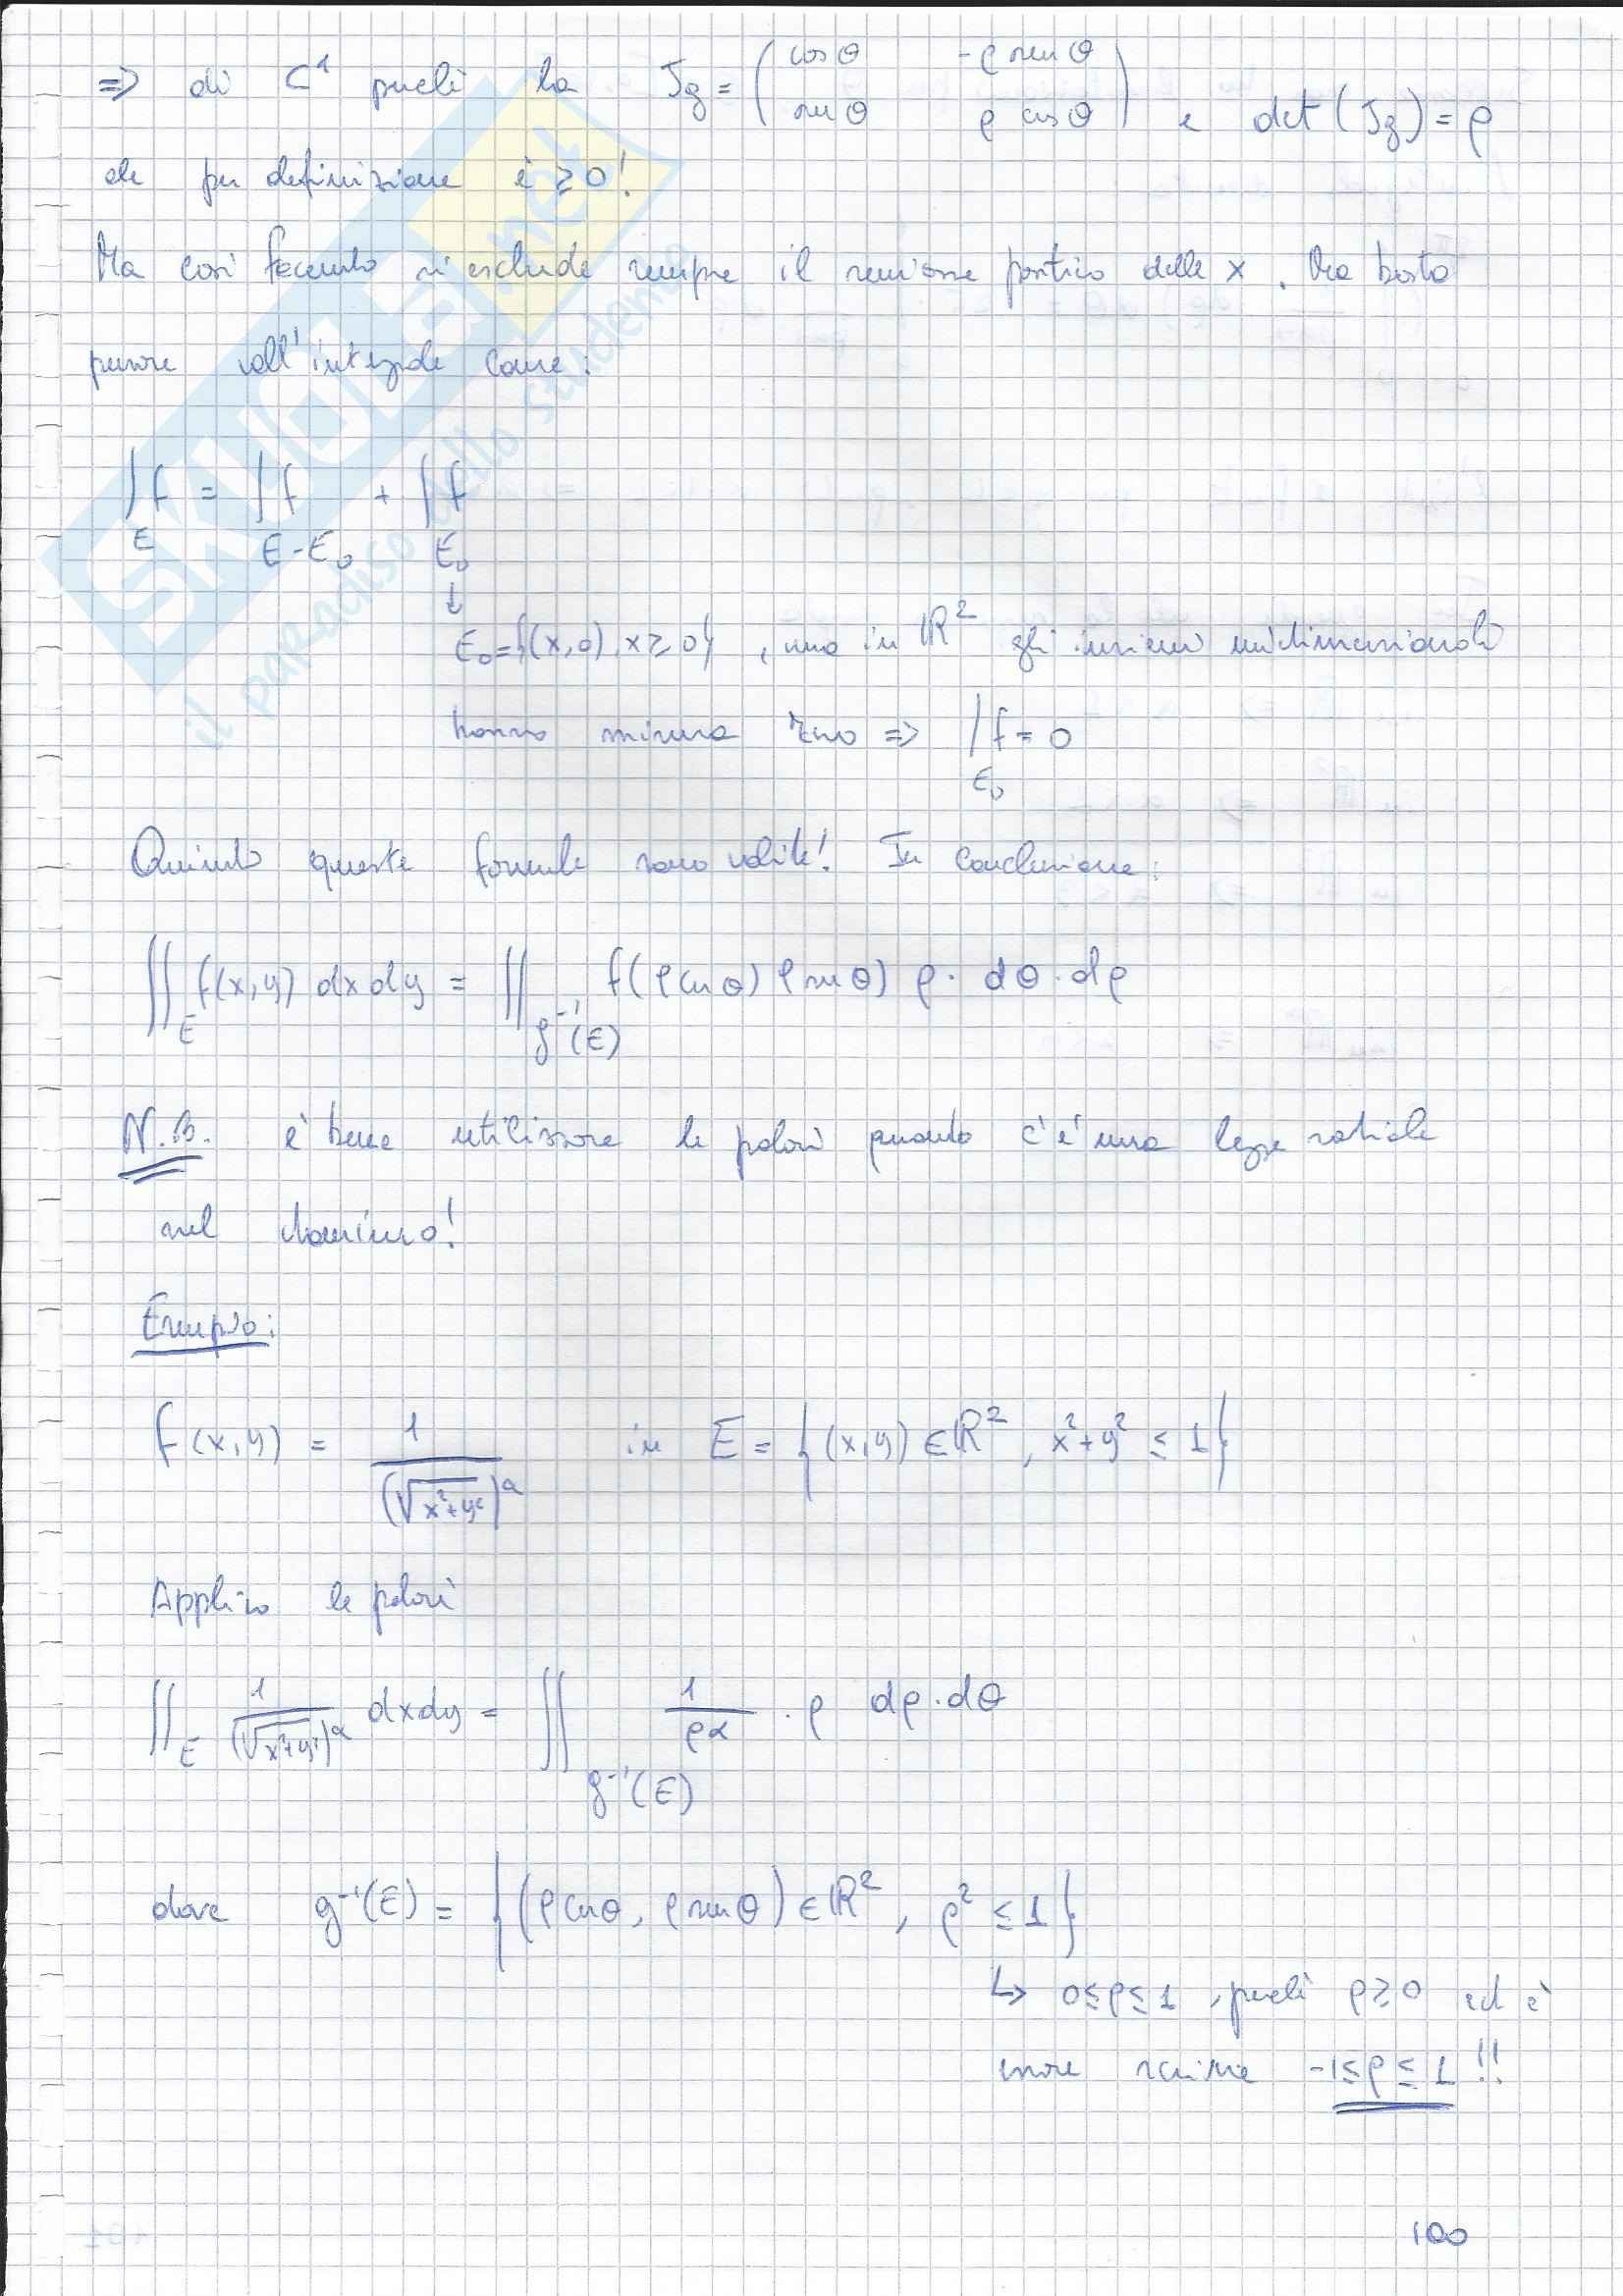 => di C¹ perché ha Jg = ( cosθ  -ρ senθ
senθ  ρ cosθ ) e det(Jg) = ρ
che per definizione è ≥ 0!
Ma così facendo si esclude sempre il semiasse positivo delle x. Ma basta
pensare all'integrale come:
∫f = ∫f + ∫f
E  E-E₀  E₀
↓
E₀={(x,0), x≥0}, ma in ℝ² gli insiemi unidimensionali
hanno misura zero => ∫f = 0
E₀
Quindi queste formule sono valide! In conclusione:
∬_E f(x,y) dxdy = ∬_g⁻¹(E) f(ρcosθ, ρsenθ) ρ · dθ · dρ
N.B. è bene utilizzare le polari quando c'è una legge radiale
nel dominio!
Esempio:
f(x,y) = 1/(√x²+y²)^α in E = {(x,y) ∈ ℝ², x²+y² ≤ 1}
Applico le polari
∬_E 1/(√x²+y²)^α dxdy = ∬_g⁻¹(E) 1/ρα · ρ dρ · dθ
dove g⁻¹(E) = {(ρcosθ, ρsenθ) ∈ ℝ², ρ² ≤ 1}
↳ 0≤ρ≤1, perché ρ≥0 ed è
scrivere -1≤ρ≤1 !!
100
SKUOLA.net
il paradiso dello studente